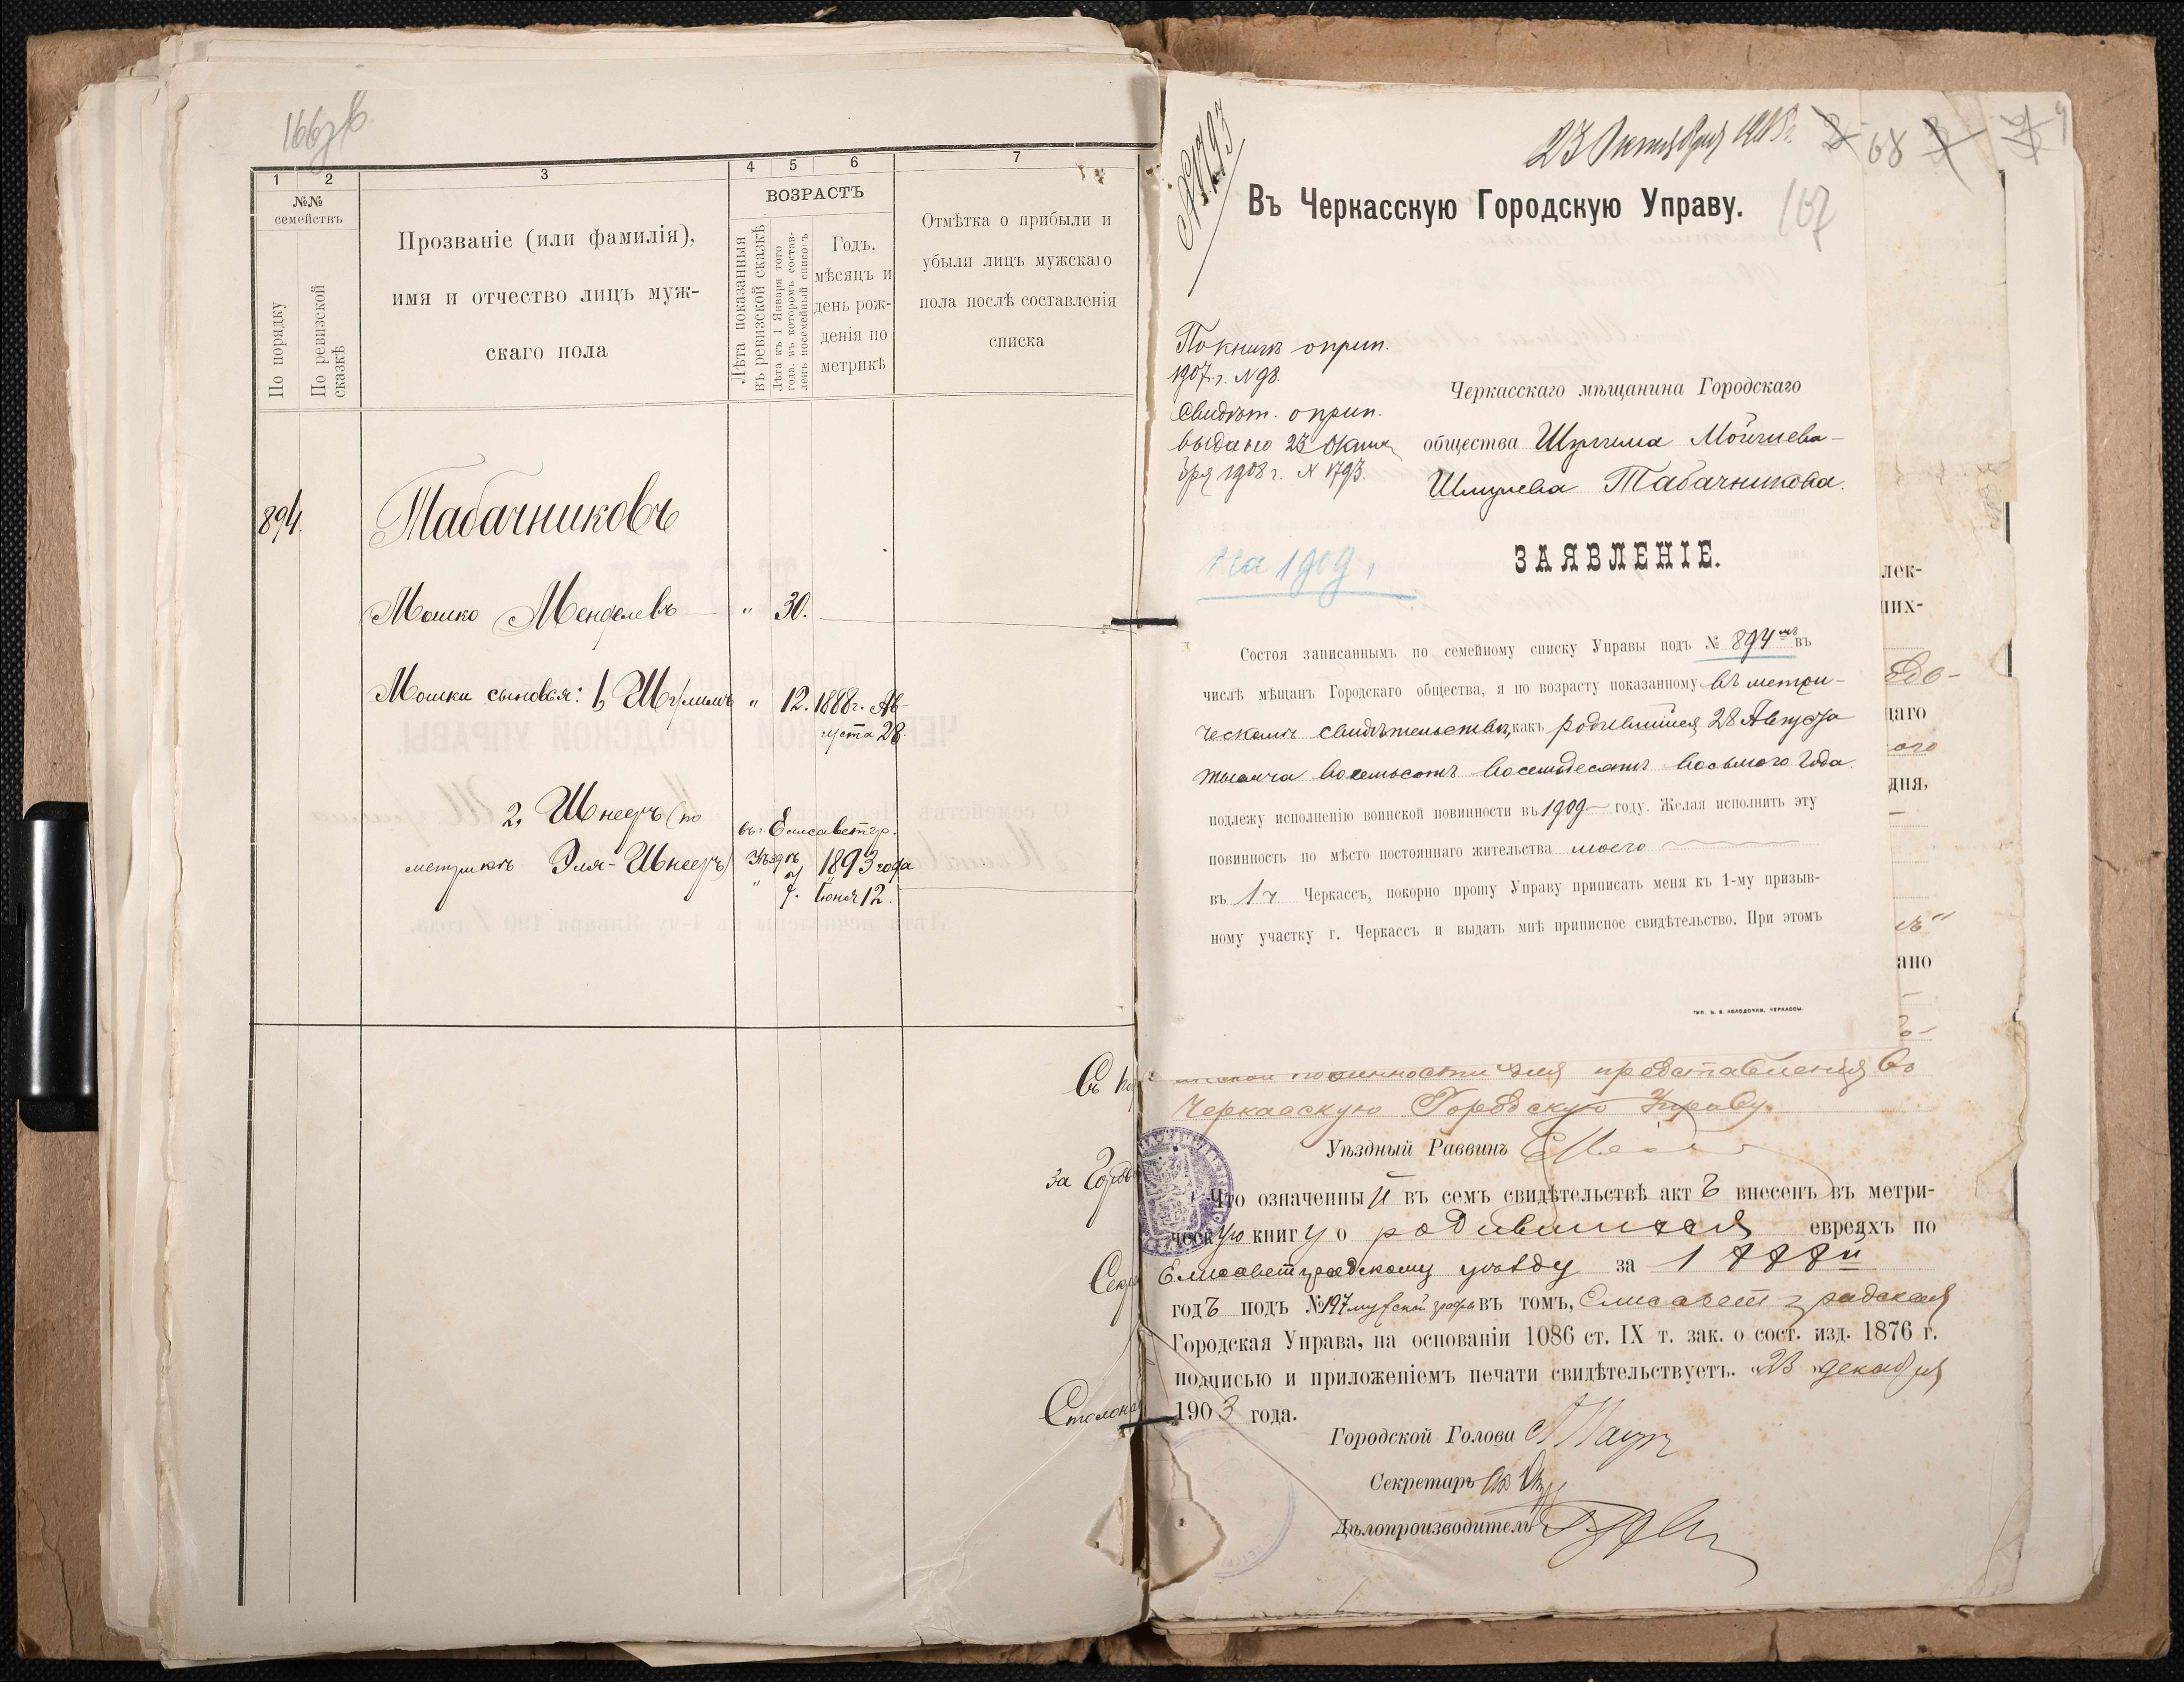 166
1
2
3
4
5
6
7
№№
семействъ
По порядку
По ревизской
сказкѣ
Прозваніе (или фамилія),
имя и отчество лицъ муж-
скаго пола
ВОЗРАСТЪ
Лѣта показанныя
въ ревизской сказкѣ
Лѣта къ 1 Января того
года, въ которомъ состав-
ленъ посемейный списокъ
Годъ,
мѣсяцъ и
день рож-
денія по
метрикѣ
Отмѣтка о прибыли и
убыли лицъ мужскаго
пола послѣ составленія
списка
894.
Табачниковъ
Мошко Менделевъ " 30.
Мошки сыновья: 1, Шулимъ " 12. 1888 г. Ав-
густа 28.
2, Шнееръ (по въ г. Елисаветгр.
метрикѣ Эля-Шнееръ) 1893 года
" 7. Іюня 12.
Въ
за Город
Секр
Столона
№ 1793
23 Октября 1908 г.
68
Въ Черкасскую Городскую Управу.
167
По книгѣ о прип.
1907 г. № 98.
Свидѣт. о прип.
выдано 23 Октя
бря 1908 г. № 1793.
Черкасскаго мѣщанина Городскаго
общества Шулима Мошкева-
Шмулева Табачникова.
На 1909 г.
ЗАЯВЛЕНІЕ.
Состоя записаннымъ по семейному списку Управы подъ № 894мъ въ
числѣ мѣщанъ Городскаго общества, я по возрасту показанному въ метри-
ческомъ свидѣтельствѣ, какъ родившійся 28 Августа
тысяча восемьсотъ восемьдесятъ восьмого года
подлежу исполненію воинской повинности въ 1909 году. Желая исполнить эту
повинность по мѣсто постояннаго жительства моего
въ 1 ч Черкассъ, покорно прошу Управу приписать меня къ 1-му призыв-
ному участку г. Черкассъ и выдать мнѣ приписное свидѣтельство. При этомъ
ТИП. В. В. КОЛОДОЧКИ, ЧЕРКАССЫ.
лек-
ших-
щаго
ого
дня,
ано
повинности для представленія въ
Черкасскую Городскую Управу.
Уѣздный Раввинъ
Что означенный въ семъ свидѣтельствѣ актъ внесенъ въ метри-
ческую книгу о родившихся евреяхъ по
Елисаветградскому уѣзду за 1888й
годъ подъ № 197 мужской графы въ томъ, Елисаветградская
Городская Управа, на основаніи 1086 ст. IX т. зак. о сост. изд. 1876 г.
подписью и приложеніемъ печати свидѣтельствуетъ. "23" декабря
1903 года.
Городской Голова
Секретарь
Дѣлопроизводитель